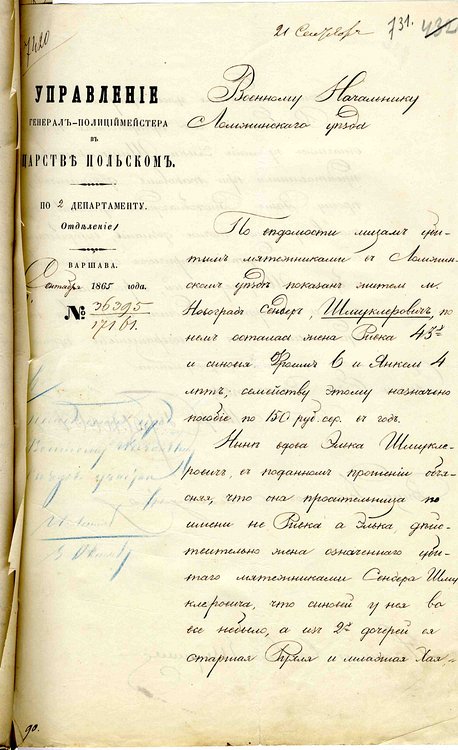 7420
21 Сентября 731. 432
УПРАВЛЕНІЕ
ГЕНЕРАЛЪ-ПОЛИЦІЙМЕЙСТЕРА
ВЪ
ЦАРСТВѢ ПОЛЬСКОМЪ.
ПО 2 ДЕПАРТАМЕНТУ.
Отдѣленіе
ВАРШАВА.
Сентября 1865 года.
№ 36395
17161.
Военному Начальнику
Ломжинскаго уѣзда
По вѣдомости лицамъ уби-
тымъ мятежниками въ Ломжин-
скомъ уѣздѣ показанъ житель м.
Новоградъ Сендеръ Шмуклеровичъ, по
немъ осталась жена Ривка 43х
и сыновья Фроимъ 6 и Янкель 4
лѣтъ, семейству этому назначено
пособіе по 150 руб. сер. въ годъ.
Нынѣ вдова Элька Шмукле-
ровичъ, въ поданномъ прошеніи объя-
сняя, что она просительница по
имени не Ривка а Элька, дѣйс-
твительно жена означеннаго уби-
таго мятежниками Сендера Шму
клеровича, что сыновей у нея во
все небыло, а изъ 2х дочерей ея
старшая Руля и младшая Хая,
90.